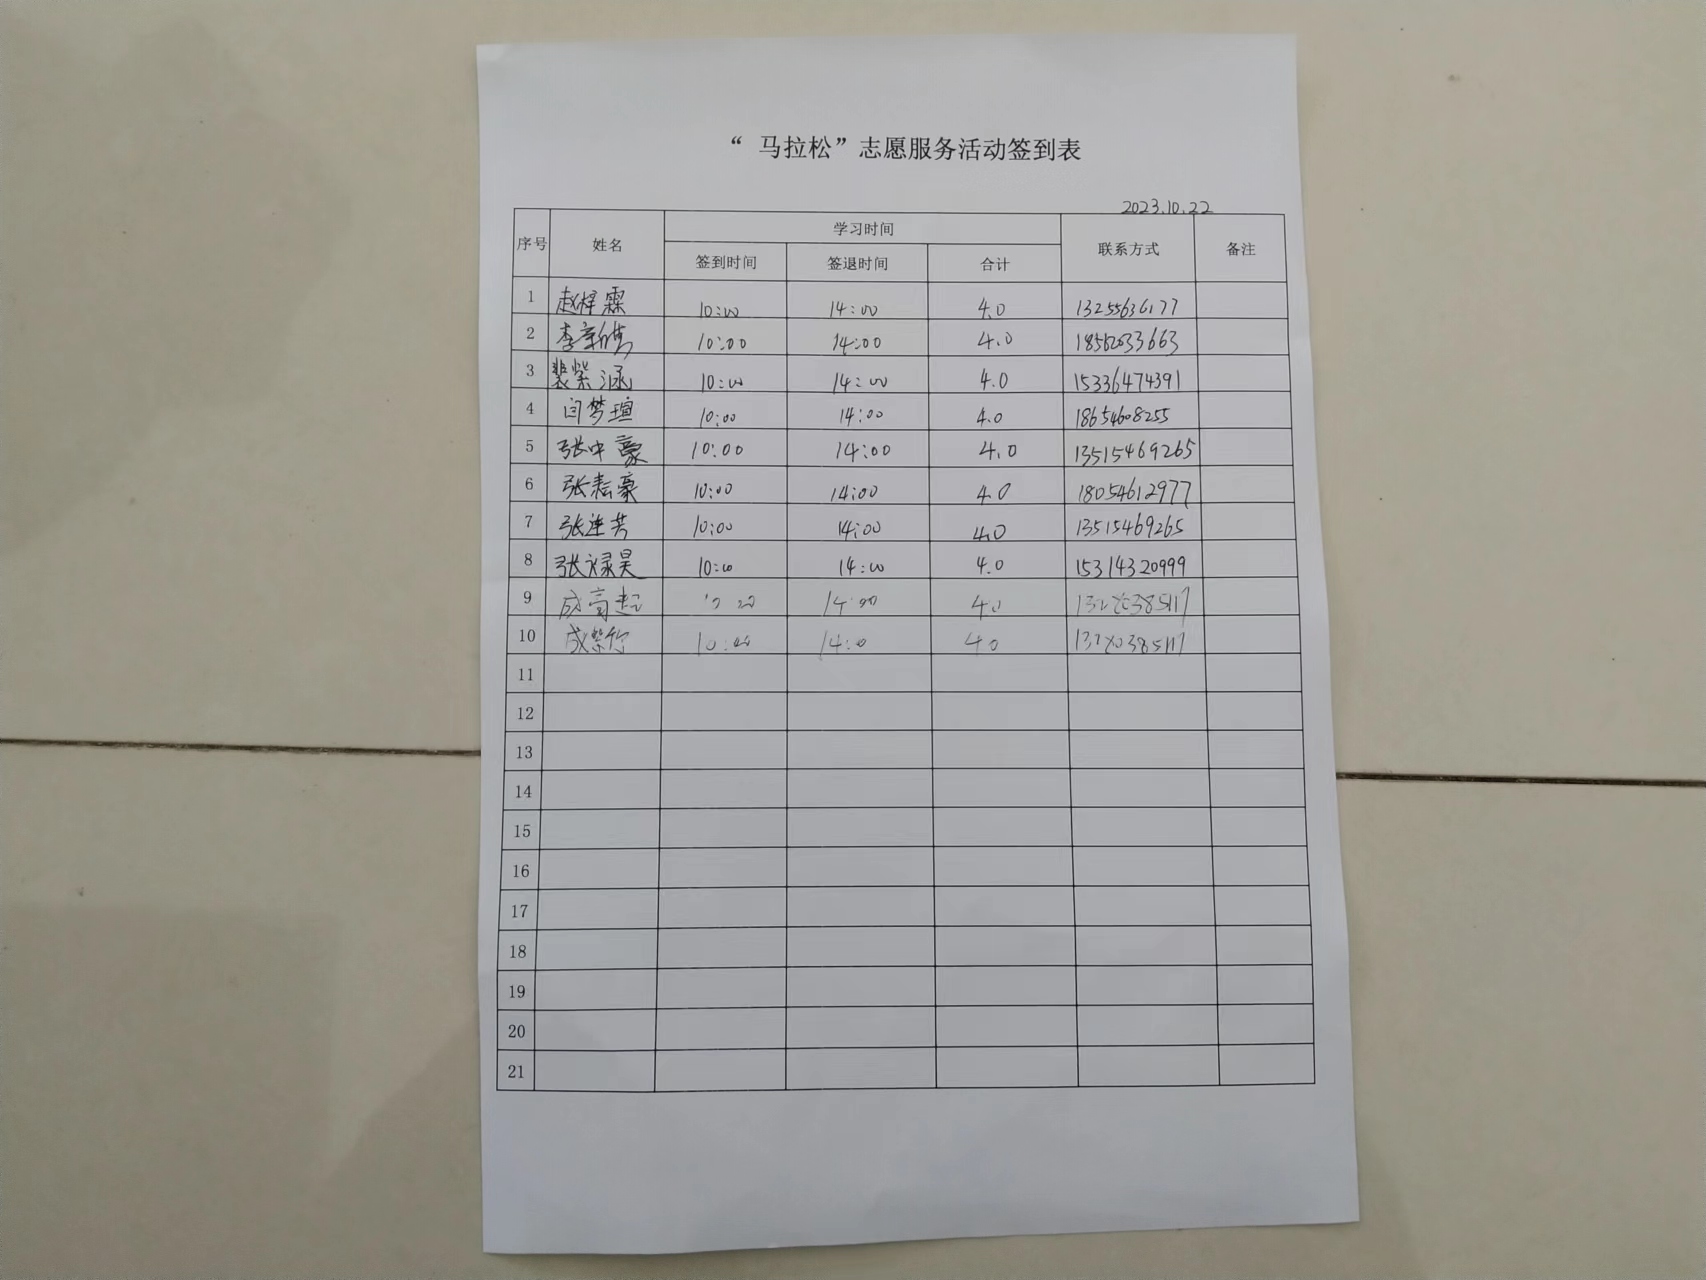 “ 马拉松”志愿服务活动签到表
2023.10.22
序号 姓名 学习时间 联系方式 备注
签到时间 签退时间 合计
1 赵梓霖 10:00 14:00 4.0 13255636177
2 李新 10:00 14:00 4.0 18562033663
3 裴紫涵 10:00 14:00 4.0 15336474391
4 闫梦瑄 10:00 14:00 4.0 18654608255
5 张中豪 10:00 14:00 4.0 13515469265
6 张耘豪 10:00 14:00 4.0 18054612977
7 张连芳 10:00 14:00 4.0 13515469265
8 张禄昊 10:00 14:00 4.0 15314320999
9 成高起 14:00 4.0 13280385117
10 成紫 10:00 14:0 4.0 13280385117
11
12
13
14
15
16
17
18
19
20
21